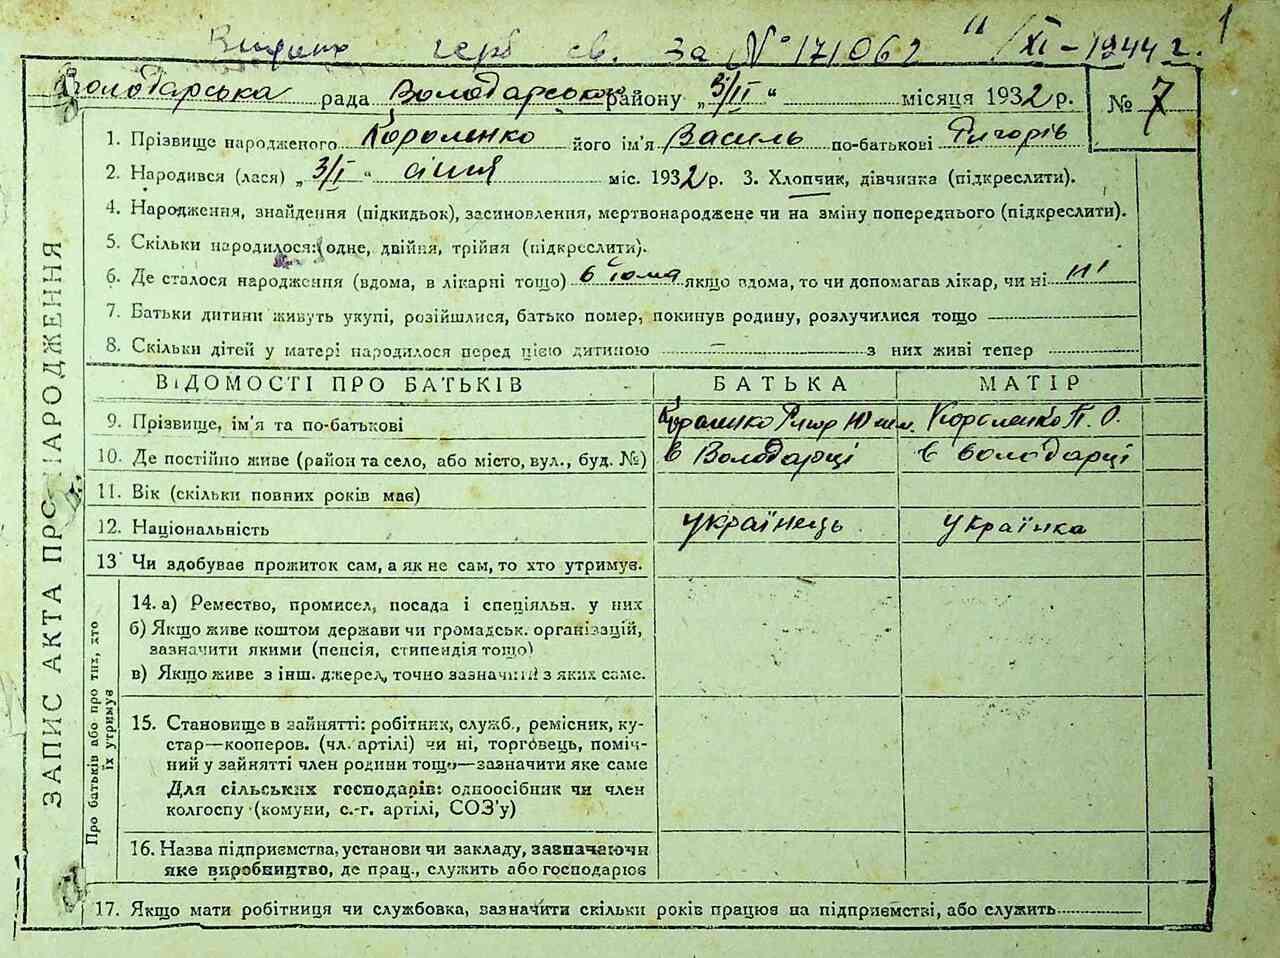 Видано герб св. За № 171062 "/XI - 1944 г. 1
Володарська рада Володарського району „3/II“ місяця 1932 р. № 7
1. Прізвище народженого Короленко його ім'я Василь по-батькові Григорів
2. Народився (лася) „3/I“ січня міс. 1932 р. 3. Хлопчик, дівчинка (підкреслити).
4. Народження, знайдення (підкидьок), засиновлення, мертвонароджене чи на зміну попереднього (підкреслити).
5. Скільки народилося: (одне, двійня, трійня (підкреслити).
6. Де сталося народження (вдома, в лікарні тощо) вдома якщо вдома, то чи допомагав лікар, чи ні ні
7. Батьки дитини живуть укупі, розійшлися, батько помер, покинув родину, розлучилися тощо
8. Скільки дітей у матері народилося перед цією дитиною — з них живі тепер
ЗАПИС АКТА ПРО НАРОДЖЕННЯ
ВІДОМОСТІ ПРО БАТЬКІВ БАТЬКА МАТІР
9. Прізвище, ім'я та по-батькові Короленко Григор Короленко П. О.
10. Де постійно живе (район та село, або місто, вул., буд. №) в Володарці в Володарці
11. Вік (скільки повних років має)
12. Національність українець українка
13 Чи здобуває прожиток сам, а як не сам, то хто утримує.
Про батьків або про тих, хто
їх утримує
14. а) Ремество, промисел, посада і спеціяльн. у них
б) Якщо живе коштом держави чи громадськ. організацій,
зазначити якими (пенсія, стипендія тощо)
в) Якщо живе з інш. джерел, точно зазначити з яких саме.
15. Становище в зайнятті: робітник, служб., ремісник, ку-
стар—кооперов. (чл. артілі) чи ні, торговець, поміч-
ний у зайнятті член родини тощо—зазначити яке саме
Для сільських господарів: одноосібник чи член
колгоспу (комуни, с.-г. артілі, СОЗ'у)
16. Назва підприємства, установи чи закладу, зазначаючи
яке виробництво, де прац., служить або господарює
17. Якщо мати робітниця чи службовка, зазначити скільки років працює на підприємстві, або служить